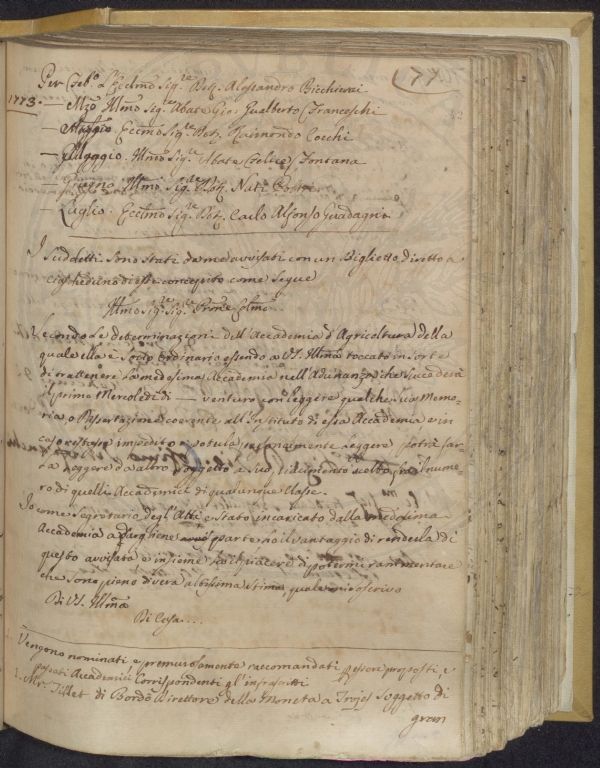 77
Per Feb.º L'Eccelmo Sig.re Dott. Alessandro Bicchierai
1773. — Mzo. Illmo Sig.re Abate Gio. Gualberto Franceschi
— Maggio. Eccmo Sig.re Dott. Raimondo Cocchi
— Illmo Sig.re Abate Felice Fontana
— Giugno. Illmo Sig.re
— Luglio. Eccelmo Sig.re Dot. Carlo Alfonso Guadagni
I suddetti sono stati da me avvisati con un Biglietto diretto a
ciascheduno di essi concepito come segue
Illmo Sig.re Sig.re Prōne Colmo
Secondo le determinazioni dell'Accademia d'Agricoltura della
quale ella è Socio Ordinario essendo a VS. Illma toccato in sorte
di trattenere la medesima Accademia nell'Adunanza che si
il primo Mercoledì di — venturo con leggere qualche sua Memo-
ria o Dissertazione coerente all'Instituto di essa Accademia e in
caso restasse impedito e potula personalmente leggere potrà far-
la leggere da altro Soggetto a suo piacimento scelto fra il nume-
ro di quelli Accademici di qualunque Classe.
Io come Segretario degl'Atti è stato incaricato dalla medesima
Accademia a parte ho il vantaggio di renderla di
questo avvisata e insieme ho il piacere di potermi rammentare
che sono pieno di vera altissima stima quale mi soscrivo
Di VS. Illma
Di Casa...
Vengono nominati e premurosamente raccomandati p essere proposti, e
passati Accademici Corrispondenti gl'infrascitti
1. Mr. Tillet di Bordò Direttore della Moneta a Trojes Soggetto di
gran